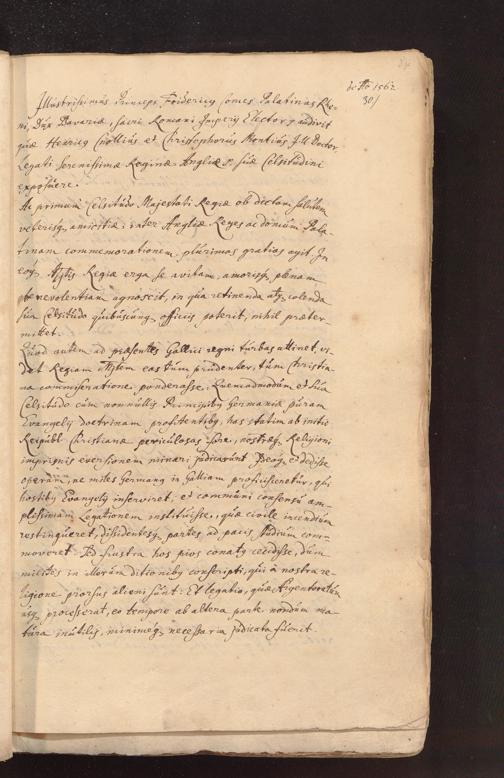 de Aō 1562
30/
Illustrissimus Princeps Fridericq Comes Palatinus Rhe-
ni, Dux Bavariæ, Sacri Romani Imperij Elector, audivit
quæ Henricq Cnollius et Christophorus Montius J.U. Doctor
Legati Serenissimæ Reginæ Angliæ &c suæ Celsitudini
exposuere.
Ac primum Celsitudo Majestati Regiæ ob dictam salutem
veterisq amicitiæ inter Angliæ Reges ac domum Pala-
tinam commemorationem, plurimas gratias agit. In
eoq Mtis Regiæ erga se avitam, amorisq plenam
benevolentiam agnoscit, in qua retinenda atq colenda
sua Celsitudo quibuscunq officijs poterit, nihil præter-
mittet.
Quod autem ad præsentes Gallici regni turbas attinet, vi-
det Regiam Mtem eas tum prudenter, tum Christia-
na commiseratione ponderasse. Quemadmodum et sua
Celsitudo cum nonnullis Principibq Germaniæ puram
Evangelij doctrinam profitentibq, has statim ab initio
Reipubl: Christianæ periculosas fore, nostræq Religioni
imprimis eversionem minari judicarunt. Deoq et dedisse
operam, ne miles Germanq in Galliam proficisceretur, qui
hostibq Evangelij inserviret, et communi consensu am-
plissimam Legationem instituisse, quæ civile incendium
restingueret, dissidentesq partes ad pacis studium com-
moveret. Sed frustra hos pios conatq cecidisse, dum
milites in illorum ditionibq conscripti, qui à nostra re-
ligione prorsus alieni sunt. Et legatio, quæ Argentoratum
usq processerat, eo tempore ab altera parte nondum ma-
tura inutilis, minimeq necessaria judicata fuerit.